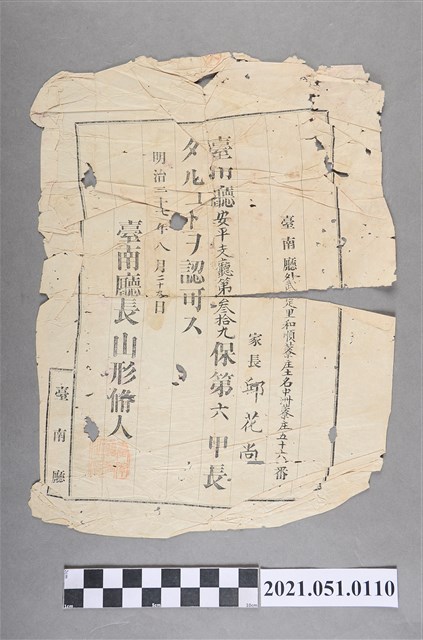 臺南廳外武定里和順藔庄土名中洲藔庄五十六番
家長 邱花尚
臺南廳安平支廳第叁拾九保第六甲長
タルコトヲ認可ス
明治三十七年八月二十五日
臺南廳長山形脩人
臺南廳
2021.051.0110